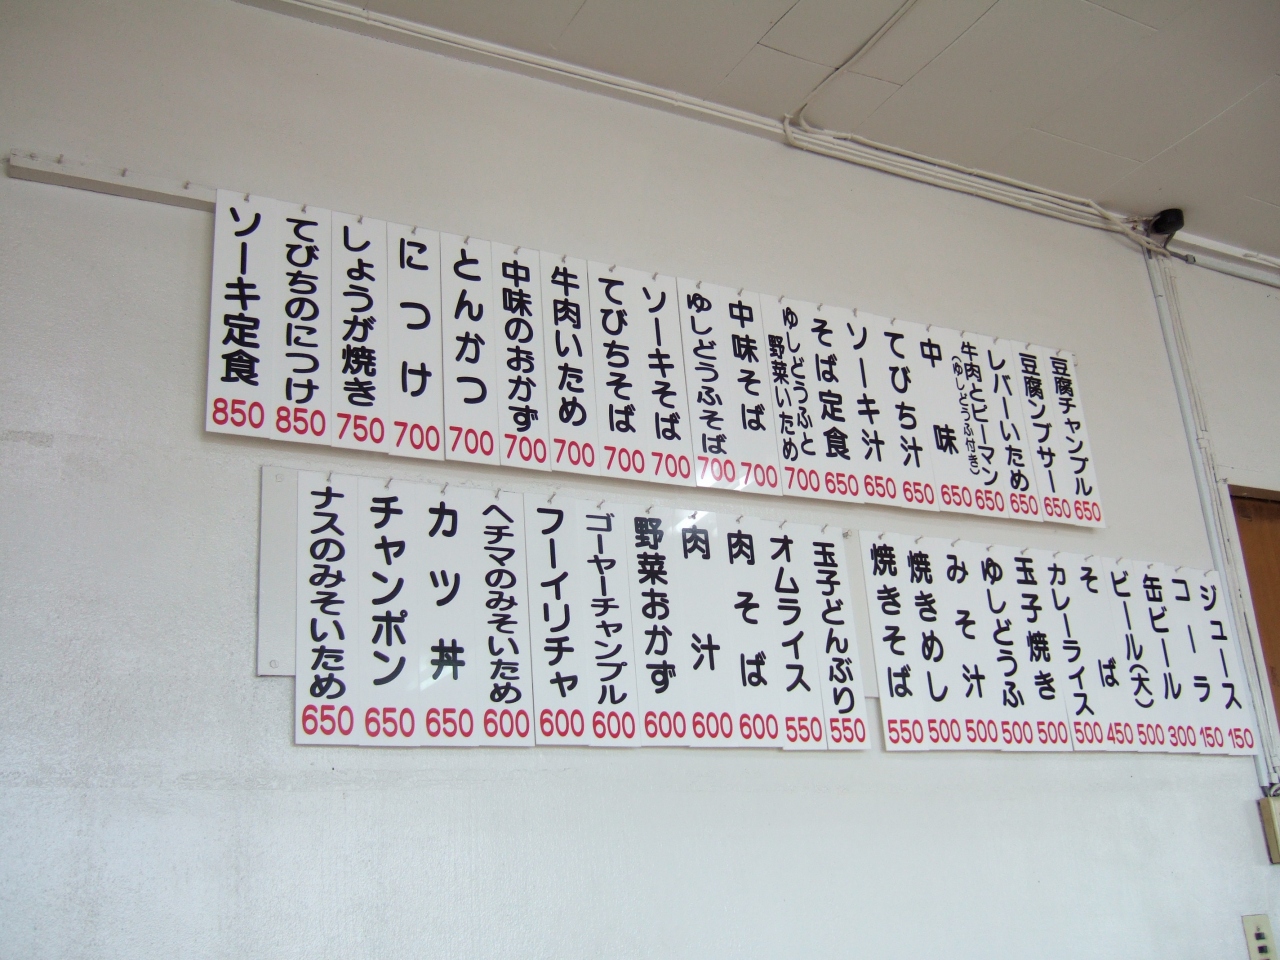 ソーキ定食 850
てびちのにつけ 850
しょうが焼き 750
につけ 700
とんかつ 700
中味のおかず 700
牛肉いため 700
てびちそば 700
ソーキそば 700
ゆしどうふそば 700
中味そば 700
ゆしどうふと
野菜いため 700
そば定食 650
ソーキ汁 650
てびち汁 650
中味 650
牛肉とピーマン
(ゆしどうふ付き) 650
レバーいため 650
豆腐ンブサー 650
豆腐チャンプル 650
ナスのみそいため 650
チャンポン 650
カツ丼 650
ヘチマのみそいため 600
フーイリチャ 600
ゴーヤーチャンプル 600
野菜おかず 600
肉汁 600
肉そば 600
オムライス 550
玉子どんぶり 550
焼きそば 550
焼きめし 500
みそ汁 500
ゆしどうふ 500
玉子焼き 500
カレーライス 500
そば 450
ビール(大) 500
缶ビール 300
コーラ 150
ジュース 150